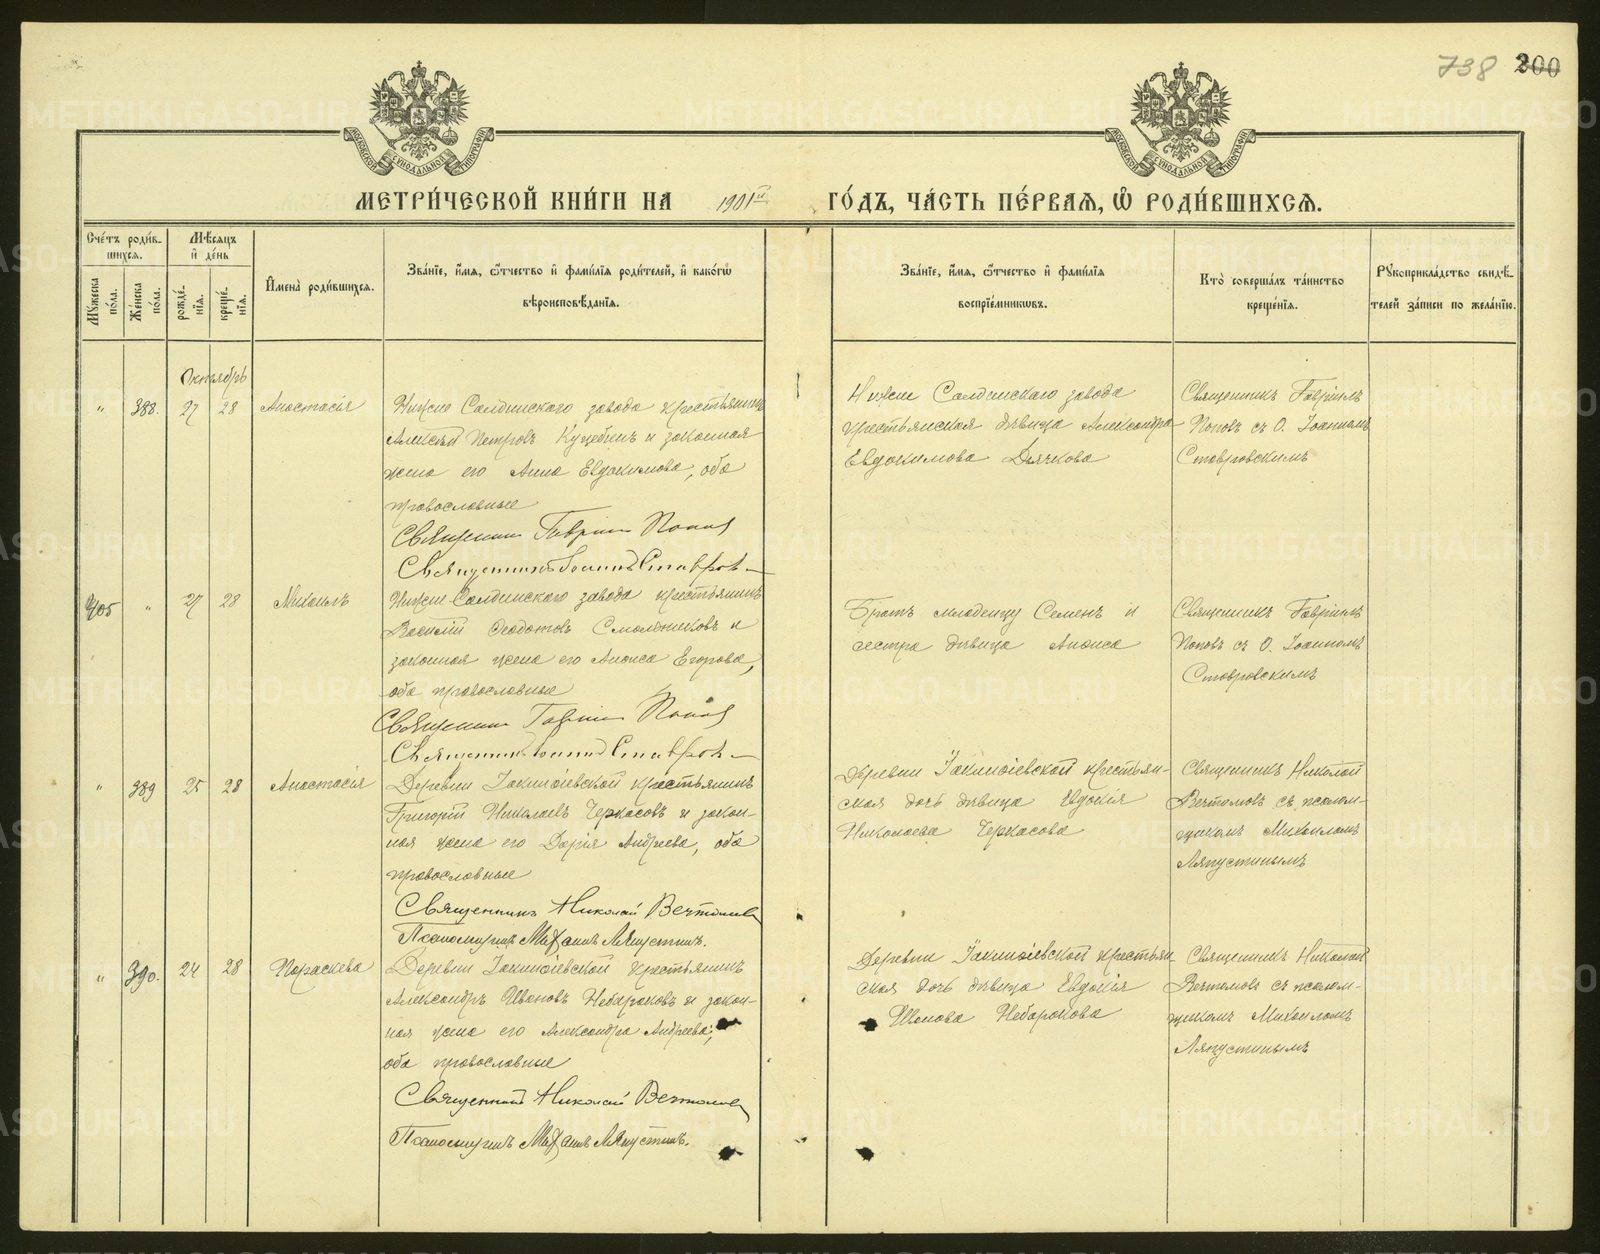 738 200
МЕТРИ́ЧЕСКОЙ КНИ́ГИ НА 1901й ГО́ДЪ, ЧА́СТЬ ПЕ́РВАЯ, Ѡ РОДИ́ВШИХСЯ.
МОСКОВСКОЙ СУНОДАЛЬНОЙ ТИПОГРАФІИ
МОСКОВСКОЙ СУНОДАЛЬНОЙ ТИПОГРАФІИ
Сче́тъ роди́в-
шихся.
Мꙋжеска по́ла.
Же́нска по́ла.
Мѣ́сяцъ
и҆ де́нь
рожде́-
нїя.
креще́-
нїя.
И҆мена̀ роди́вшихся.
Зва́нїе, и҆́мя, ѻ҆́тчество и҆ фами́лїя роди́телей, и҆ како́гѡ
вѣроисповѣ́данїя.
Зва́нїе, и҆́мя, ѻ҆́тчество и҆ фами́лїя
воспрїе́мникѡвъ.
Кто̀ соверша́лъ та́инство
креще́нїя.
Рꙋкоприкла́дство свидѣ́-
телей за́писи по жела́нїю.
Октябрь
" 388. 27 28 Анастасія
Нижне Салдинскаго завода крестьянинъ
Алексѣй Петровъ и законная
жена его Анна Евдокимова, оба
православные
Священникъ Гавріилъ Поповъ
Священникъ Іоаннъ Ставров
Нижне Салдинскаго завода
крестьянская дѣвица Александра
Евдокимова Дьячкова
Священникъ Гавріилъ
Поповъ съ О. Іоанномъ
Ставровскимъ
405 " 27 28 Михаилъ
Нижне-Салдинскаго завода крестьянинъ
Василій Ѳеодотовъ Смольниковъ и
законная жена его Анѳиса Егорова,
оба православные
Священникъ Гавріилъ Поповъ
Священникъ Іоаннъ Ставров
Братъ младенцу Семенъ и
сестра дѣвица Анѳиса
Священникъ Гавріилъ
Поповъ съ О. Іоанномъ
Ставровскимъ
" 389 25 28 Анастасія
Деревни Іакинѳіевской крестьянинъ
Григорій Николаевъ Черкасовъ и закон-
ная жена его Дарія Андреева, оба
православные
Священникъ Николай
Псаломщикъ Михаилъ Ляпустинъ.
Деревни Іакинѳіевской крестьян-
ская дочь дѣвица Евдокія
Николаева Черкасова
Священникъ Николай
съ псалом-
щикомъ Михаиломъ
Ляпустинымъ
" 390. 24 28 Параскева
Деревни Іакинѳіевской крестьянинъ
Александръ Ивановъ Небараковъ и закон-
ная жена его Александра Андреева,
оба православные
Священникъ Николай
Псаломщикъ Михаилъ Ляпустинъ.
Деревни Іакинѳіевской крестьян-
ская дочь дѣвица Евдокія
Иванова Небаракова
Священникъ Николай
съ псалом-
щикомъ Михаиломъ
Ляпустинымъ
METRIKI.GASO-URAL.RU